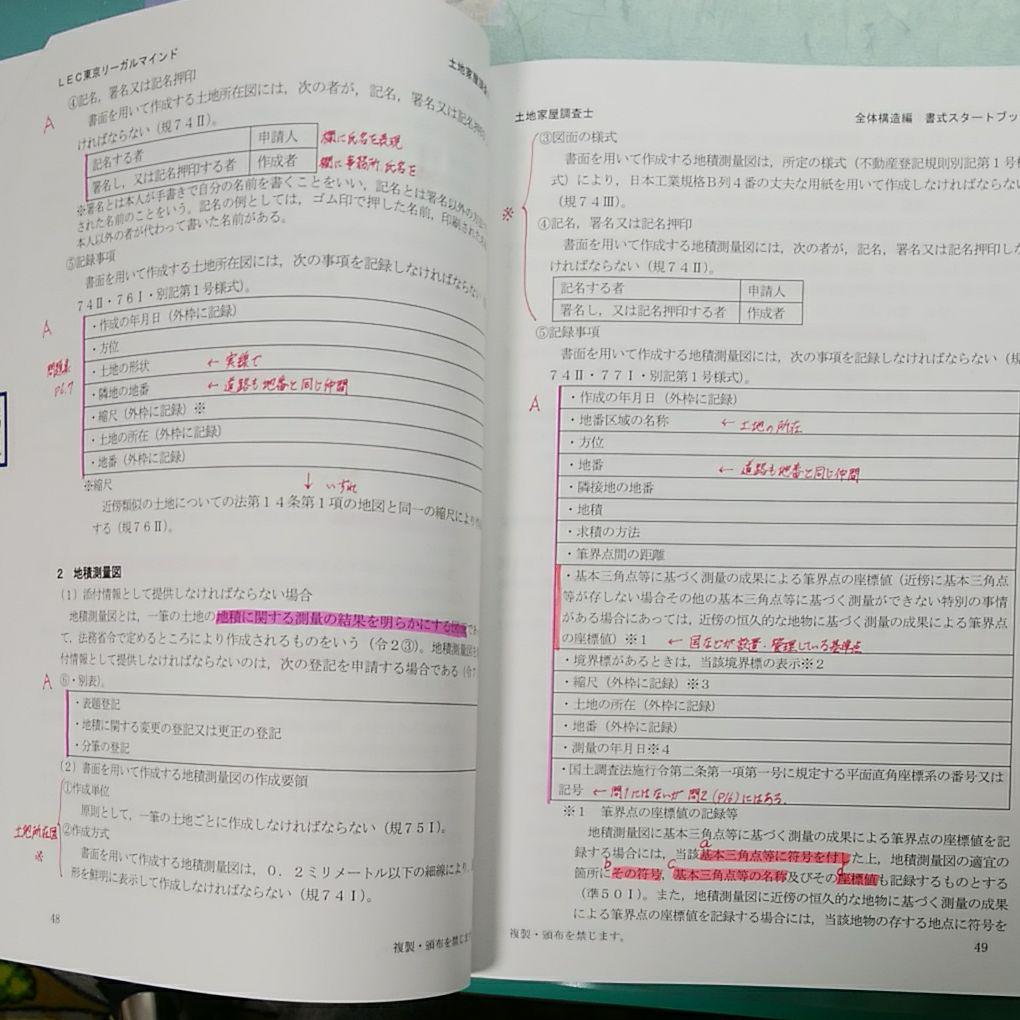 LEC東京リーガルマインド
土地家屋調査
④記名，署名又は記名押印
A
書面を用いて作成する土地所在図には，次の者が，記名，署名又は記名押印
ければならない（規７４Ⅱ）。
記名する者 申請人 欄に氏名を表現
署名し，又は記名押印する者 作成者 欄に事務所,氏名を
※署名とは本人が手書きで自分の名前を書くことをいい，記名とは署名以外の方法
された名前のことをいう。記名の例としては，ゴム印で押した名前，印刷された
本人以外の者が代わって書いた名前がある。
⑤記録事項
書面を用いて作成する土地所在図には，次の事項を記録しなければならない
７４Ⅱ・７６Ⅰ・別記第１号様式）。
A
・作成の年月日（外枠に記録）
・方位
・土地の形状 ← 実線で
問題集
P6.7
・隣地の地番 ← 道路も地番と同じ仲間
・縮尺（外枠に記録）※
・土地の所在（外枠に記録）
・地番（外枠に記録）
※縮尺
↓
近傍類似の土地についての法第１４条第１項の地図と同一の縮尺により
する（規７６Ⅱ）。
2 地積測量図
（1）添付情報として提供しなければならない場合
地積測量図とは，一筆の土地の地積に関する測量の結果を明らかにする図面であ
て，法務省令で定めるところにより作成されるものをいう（令２③）。地積測量図を
付情報として提供しなければならないのは，次の登記を申請する場合である（令７
A
⑥・別表）。
・表題登記
・地積に関する変更の登記又は更正の登記
・分筆の登記
（2）書面を用いて作成する地積測量図の作成要領
①作成単位
原則として，一筆の土地ごとに作成しなければならない（規７５Ⅰ）。
土地所在図
※
②作成方式
書面を用いて作成する地積測量図は，０．２ミリメートル以下の細線により，
形を鮮明に表示して作成しなければならない（規７４Ⅰ）。
48
複製・頒布を禁じま
土地家屋調査士
全体構造編 書式スタートブッ
③図面の様式
書面を用いて作成する地積測量図は，所定の様式（不動産登記規則別記第１号
式）により，日本工業規格Ｂ列４番の丈夫な用紙を用いて作成しなければならな
※
（規７４Ⅲ）。
④記名，署名又は記名押印
書面を用いて作成する地積測量図には，次の者が，記名，署名又は記名押印し
ければならない（規７４Ⅱ）。
記名する者 申請人
署名し，又は記名押印する者 作成者
⑤記録事項
書面を用いて作成する地積測量図には，次の事項を記録しなければならない（規
７４Ⅱ・７７Ⅰ・別記第１号様式）。
A
・作成の年月日（外枠に記録）
・地番区域の名称 ← 土地の所在
・方位
・地番 ← 道路も地番と同じ仲間
・隣接地の地番
・地積
・求積の方法
・筆界点間の距離
・基本三角点等に基づく測量の成果による筆界点の座標値（近傍に基本三角点
等が存しない場合その他の基本三角点等に基づく測量ができない特別の事情
がある場合にあっては，近傍の恒久的な地物に基づく測量の成果による筆界点
の座標値）※１ ← 国などが設置・管理している基準点
・境界標があるときは，当該境界標の表示※２
・縮尺（外枠に記録）※３
・土地の所在（外枠に記録）
・地番（外枠に記録）
・測量の年月日※４
・国土調査法施行令第二条第一項第一号に規定する平面直角座標系の番号又は
記号 ← 問1にはないが 問2（P16）にはある.
※１ 筆界点の座標値の記録等
地積測量図に基本三角点等に基づく測量の成果による筆界点の座標値を記
a
録する場合には，当該基本三角点等に符号を付した上，地積測量図の適宜の
b c d
箇所にその符号，基本三角点等の名称及びその座標値も記録するものとする
（準５０Ⅰ）。また，地積測量図に近傍の恒久的な地物に基づく測量の成果
による筆界点の座標値を記録する場合には，当該地物の存する地点に符号を
複製・頒布を禁じます。
49